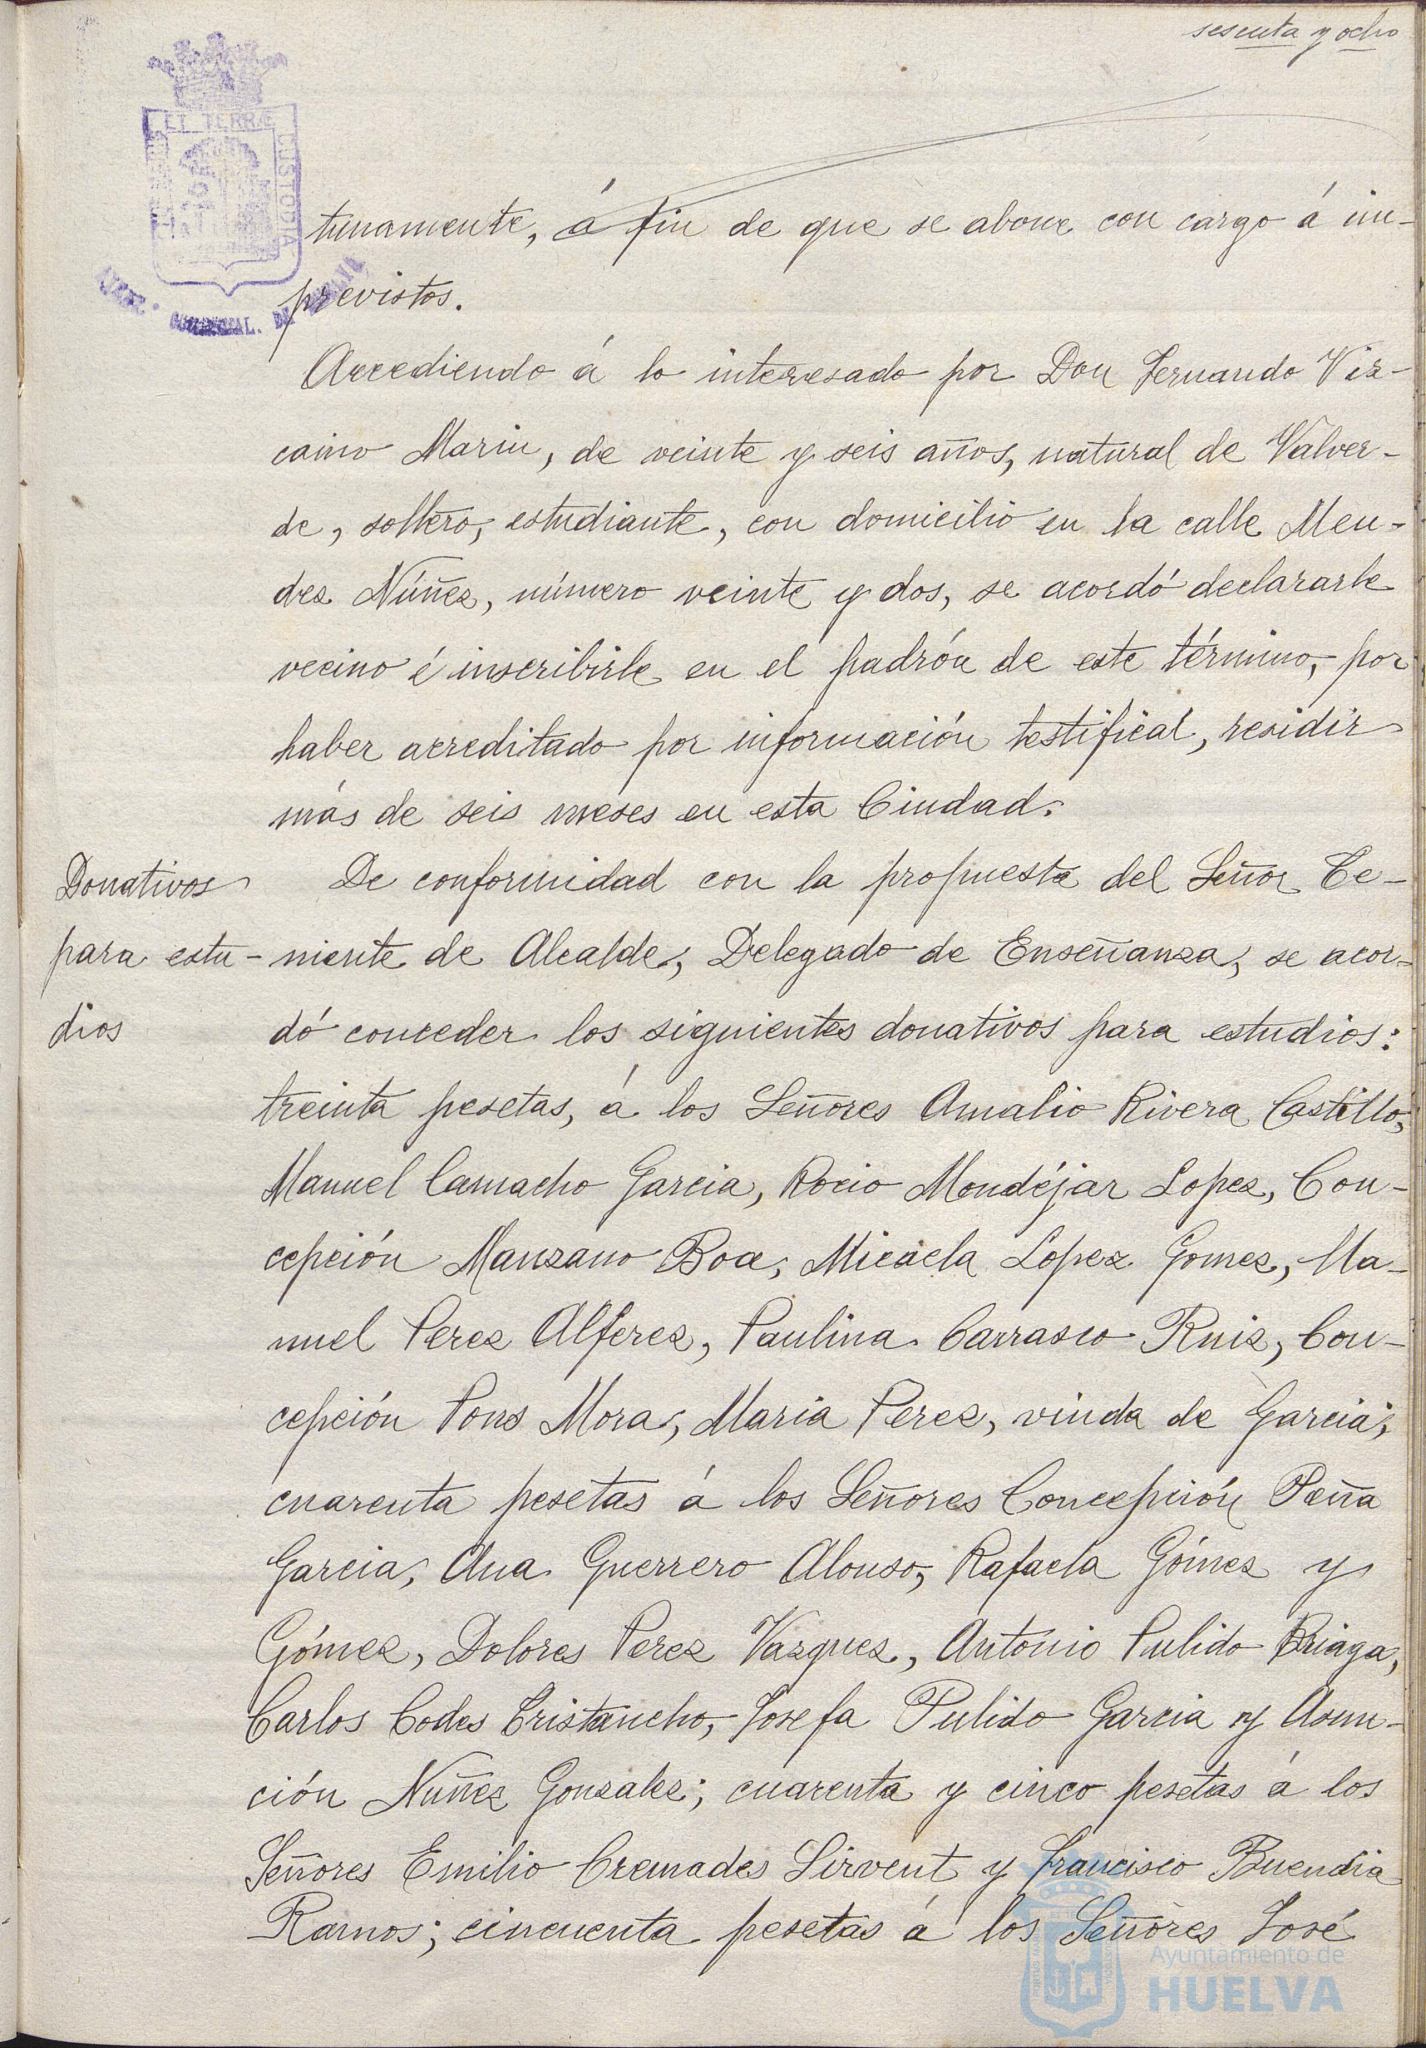 sesenta y ocho
ET TERRÆ
CUSTODIA
tunamente, á fin de que se abone con cargo á im-
previstos.
Accediendo á lo interesado por Don Fernando Viz-
caino Marin, de veinte y seis años, natural de Valver-
de, soltero, estudiante, con domicilio en la calle Men-
dez Núñez, número veinte y dos, se acordó declararle
vecino é inscribirle en el padrón de este término, por
haber acreditado por información testifical, residir
más de seis meses en esta Ciudad.
Donativos
para estu-
dios
De conformidad con la propuesta del Señor Te-
niente de Alcalde, Delegado de Enseñanza, se acor-
dó conceder los siguientes donativos para estudios:
treinta pesetas, á los Señores Amalio Rivera Castillo,
Manuel Camacho Garcia, Rocio Mondéjar Lopez, Con-
cepción Manzano Boa, Micaela López Gomez, Ma-
nuel Perez Alferez, Paulina Carrasco Ruiz, Con-
cepción Pons Mora, Maria Perez, viuda de Garcia;
cuarenta pesetas á los Señores Concepción Peña
Garcia, Ana Guerrero Alonso, Rafaela Gómez y
Gómez, Dolores Perez Vazquez, Antonio Pulido
Carlos Codes Cristancho, Josefa Pulido Garcia y Asun-
ción Nuñez Gonzalez; cuarenta y cinco pesetas á los
Señores Emilio Cremades Sirvent y Francisco Buendia
Ramos; cincuenta pesetas á los Señores José
Ayuntamiento de
HUELVA